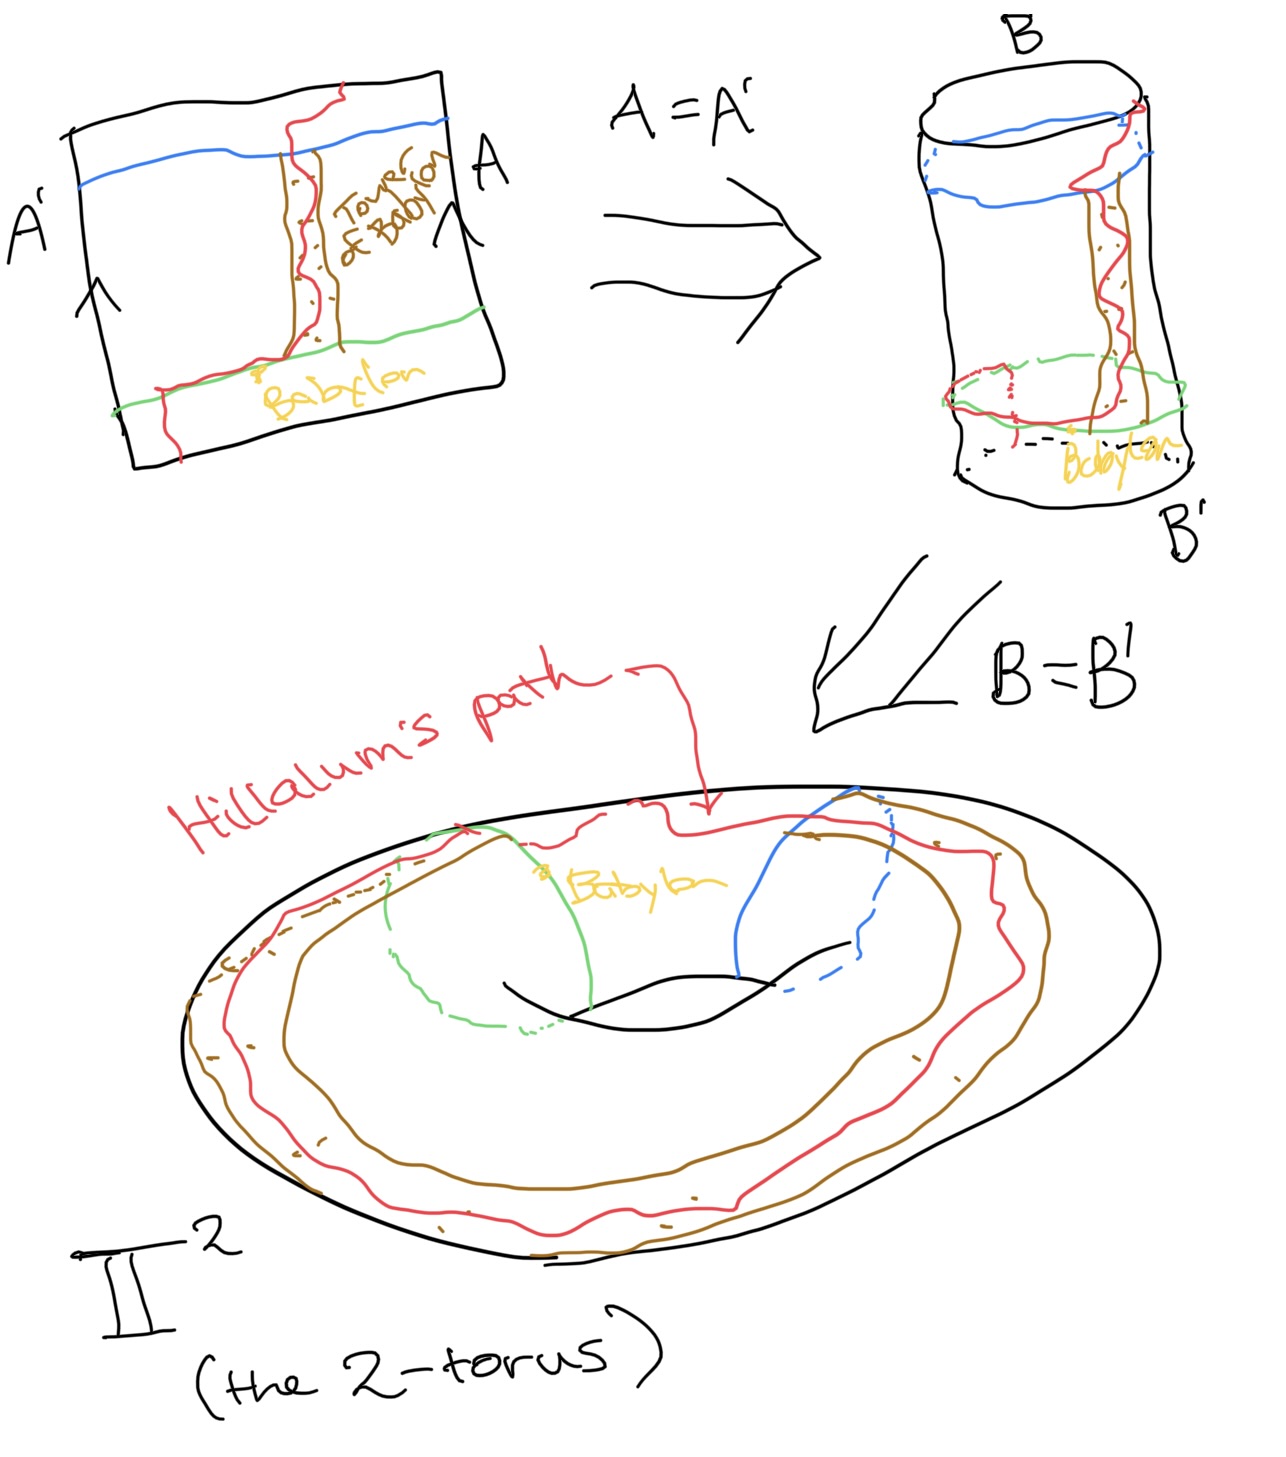 B
A = A'
A
A'
Tower
of Babylon
Babylon
Babylon
B'
B = B'
Hillalum's path
Babylon
𝕋²
(the 2-torus)